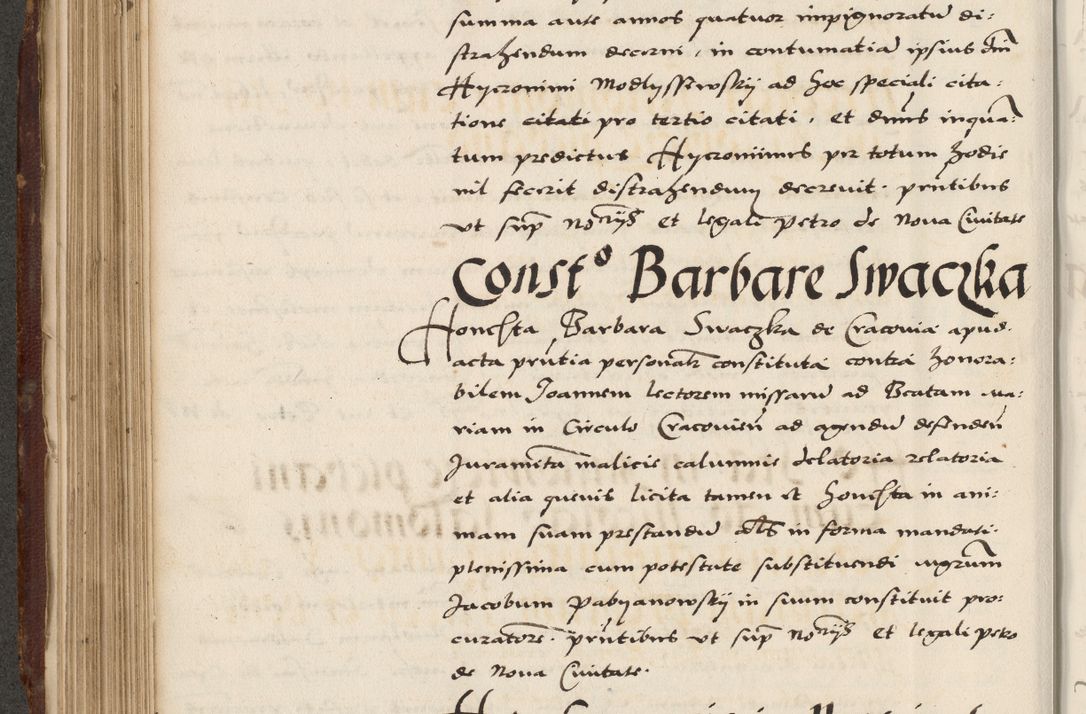 summa ante annos quatuor impignoratũ di:
strahendum decerni, in contumatiã ipsius dñi
Hyeronimi Modlyssewskÿ ad hoc speciali cita:
tione citati pro tertio citati, et dñus inquã:
tum predictus Hyeronimus per totum hodie
nil fecerit distrahendum decrevit. pñtibus
ut sup̃ noȓijs et legali petro de Nova Civitate
Constº Barbare Swaczka
Honesta Barbara Swaczka de Cracovia apud
acta pñtia personalr constituta contra honora:
bilem Joannem lectorem missarũ ad Beatam Ma:
riam in Circulo Cracovieñ ad agendũ defendeñ
Juramẽta malicie calumnie delatoria relatoria
et alia quevis licita tamen et honesta in ani:
mam suam prestandũ als in forma mandati
plenissima cum potestate substituendi mgrum
Jacobum pabyanowskÿ in suum constituit pro:
curatorẽ. pñtibus ut sup̃ noȓijs et legali petro
de Nova Civitate.